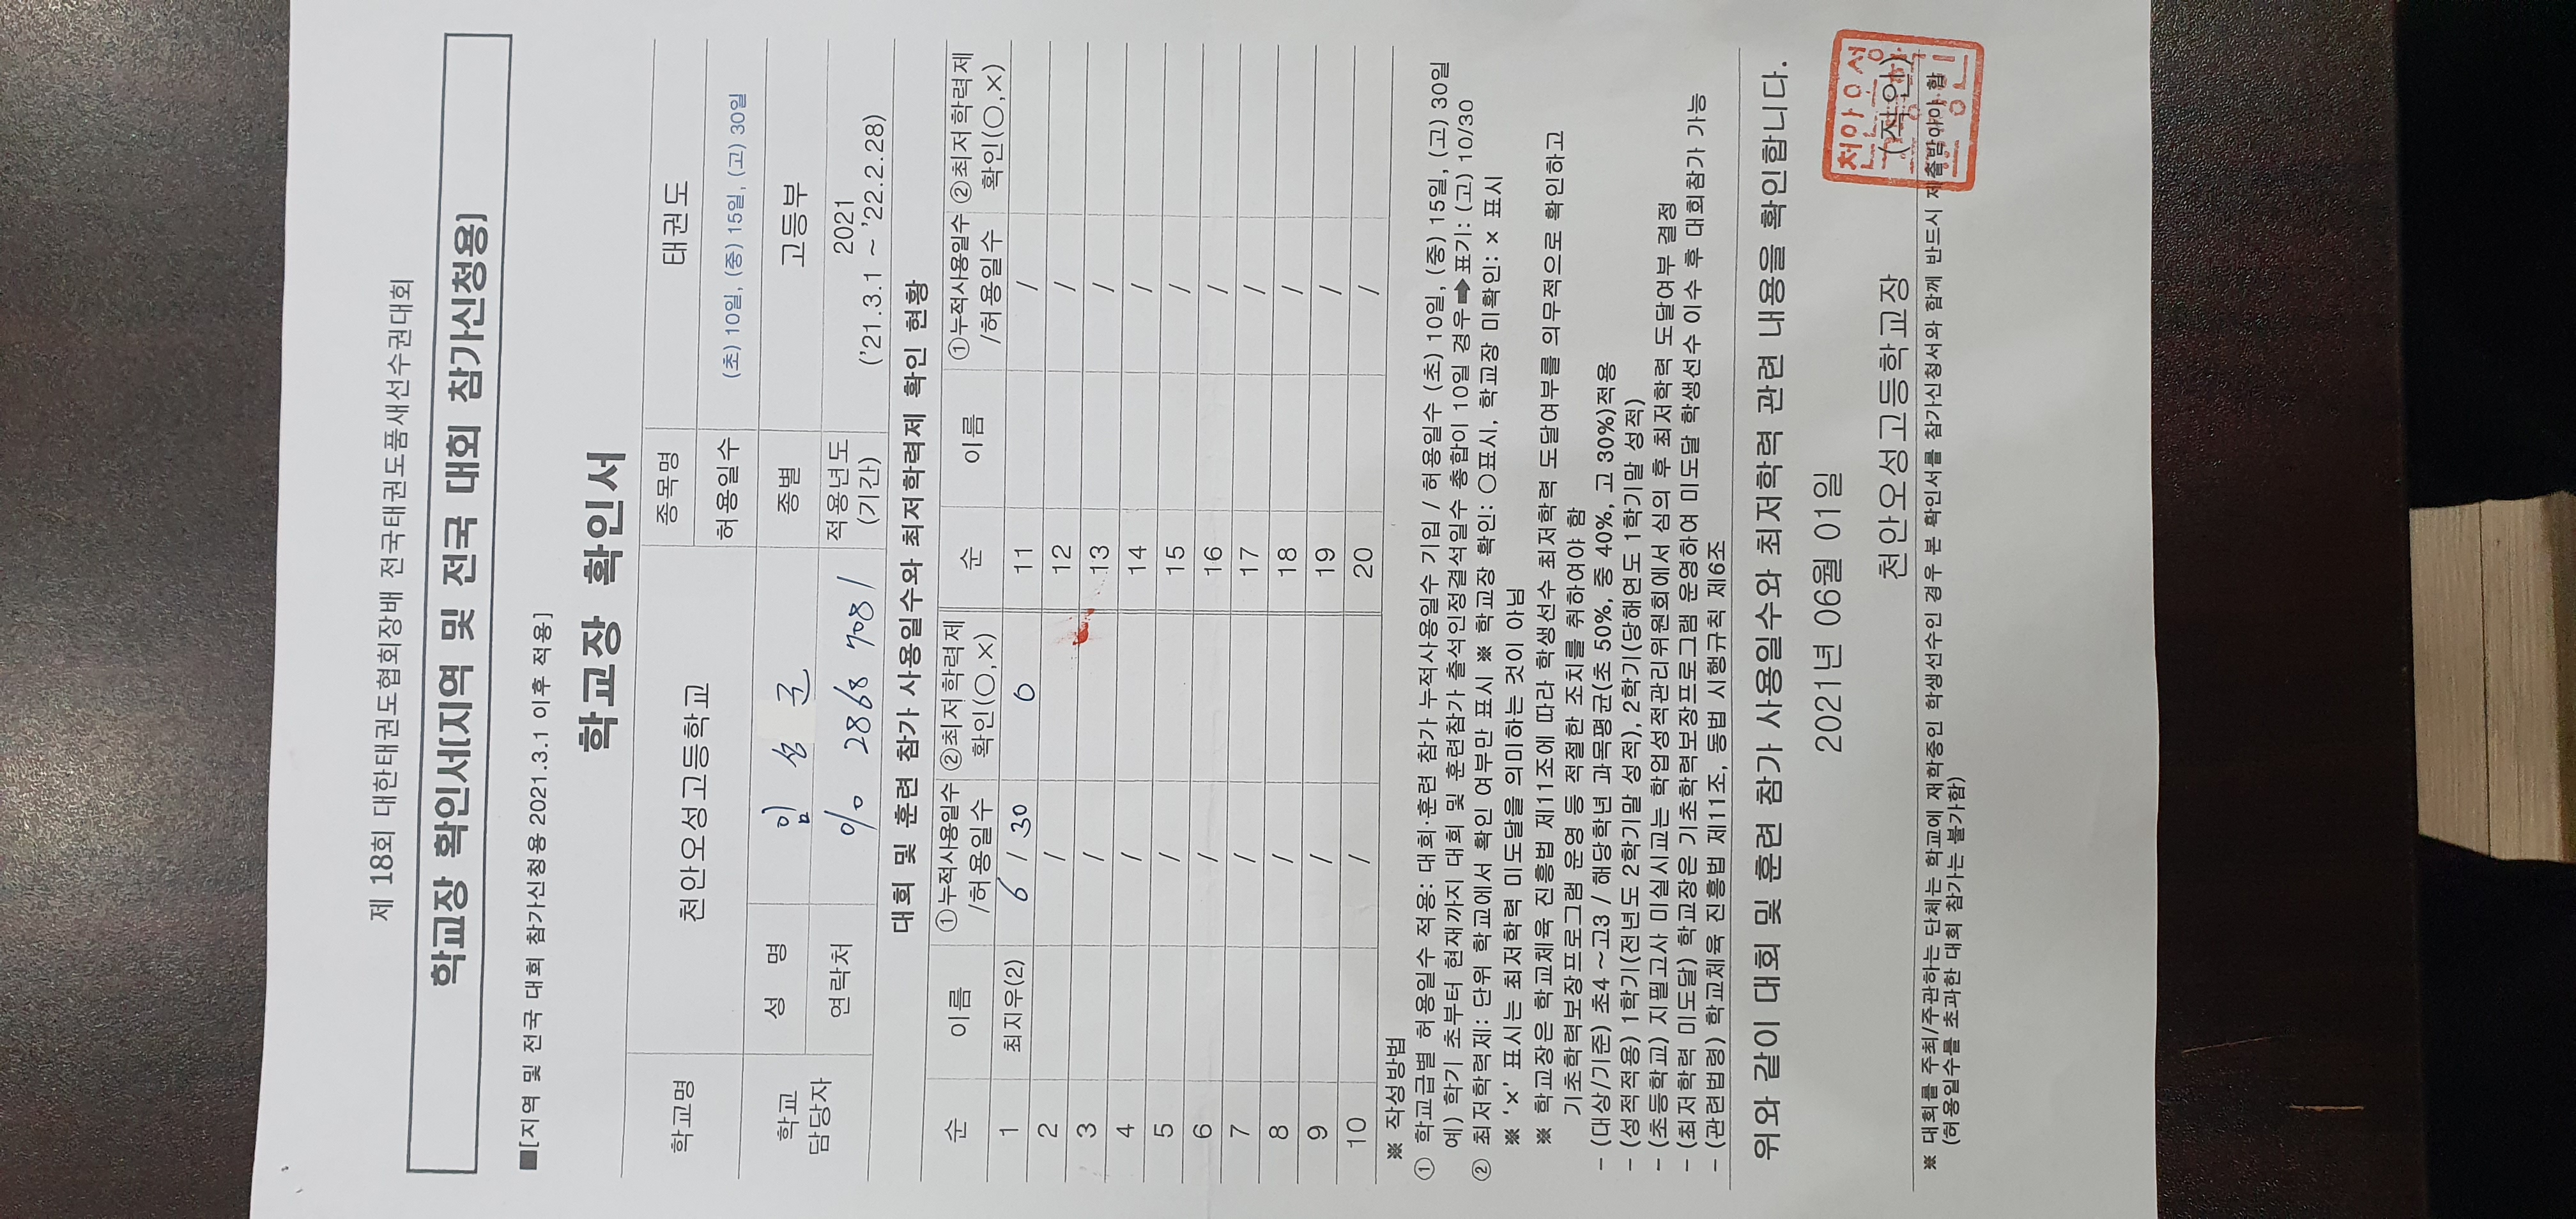 제 18회 대한태권도협회장배 전국태권도품새선수권대회
학교장 확인서[지역 및 전국 대회 참가신청용]
■[지역 및 전국 대회 참가신청용 2021.3.1 이후 적용]
학교장 확인서
학교명 천안오성고등학교 종목명 태권도
허용일수 (초) 10일, (중) 15일, (고) 30일
학교 담당자 성 명 임 성 근 종별 고등부
연락처 010 2868 7081 적용년도 (기간) 2021 ('21.3.1 ~ '22.2.28)
대회 및 훈련 참가 사용일수와 최저학력제 확인 현황
순 이름 ①누적사용일수 /허용일수 ②최저학력제 확인(○,×) 순 이름 ①누적사용일수 /허용일수 ②최저학력제 확인(○,×)
1 최지우(2) 6 / 30 O 11 /
2 / 12 /
3 / 13 /
4 / 14 /
5 / 15 /
6 / 16 /
7 / 17 /
8 / 18 /
9 / 19 /
10 / 20 /
※ 작성방법
① 학교급별 허용일수 적용: 대회·훈련 참가 누적사용일수 기입 / 허용일수 (초) 10일, (중) 15일, (고) 30일
예) 학기 초부터 현재까지 대회 및 훈련참가 출석인정결석일수 총합이 10일 경우 ➡ 표기: (고) 10/30
② 최저학력제: 단위 학교에서 확인 여부만 표시 ※ 학교장 확인: ○표시, 학교장 미확인: × 표시
※ '×' 표시는 최저학력 미도달을 의미하는 것이 아님
※ 학교장은 학교체육 진흥법 제11조에 따라 학생선수 최저학력 도달여부를 의무적으로 확인하고
기초학력보장프로그램 운영 등 적절한 조치를 취하여야 함
- (대상/기준) 초4 ~고3 / 해당학년 과목평균(초 50%, 중 40%, 고 30%)적용
- (성적적용) 1학기(전년도 2학기말 성적), 2학기(당해연도 1학기말 성적)
- (초등학교) 지필고사 미실시교는 학업성적관리위원회에서 심의 후 최저학력 도달여부 결정
- (최저학력 미도달) 학교장은 기초학력보장프로그램 운영하여 미도달 학생선수 이수 후 대회참가 가능
- (관련법령) 학교체육 진흥법 제11조, 동법 시행규칙 제6조
위와 같이 대회 및 훈련 참가 사용일수와 최저학력 관련 내용을 확인합니다.
2021년 06월 01일
천안오성고등학교장 (직인)
※ 대회를 주최/주관하는 단체는 학교에 재학중인 학생선수인 경우 본 확인서를 참가신청서와 함께 반드시 제출받아야 함
(허용일수를 초과한 대회 참가는 불가함)